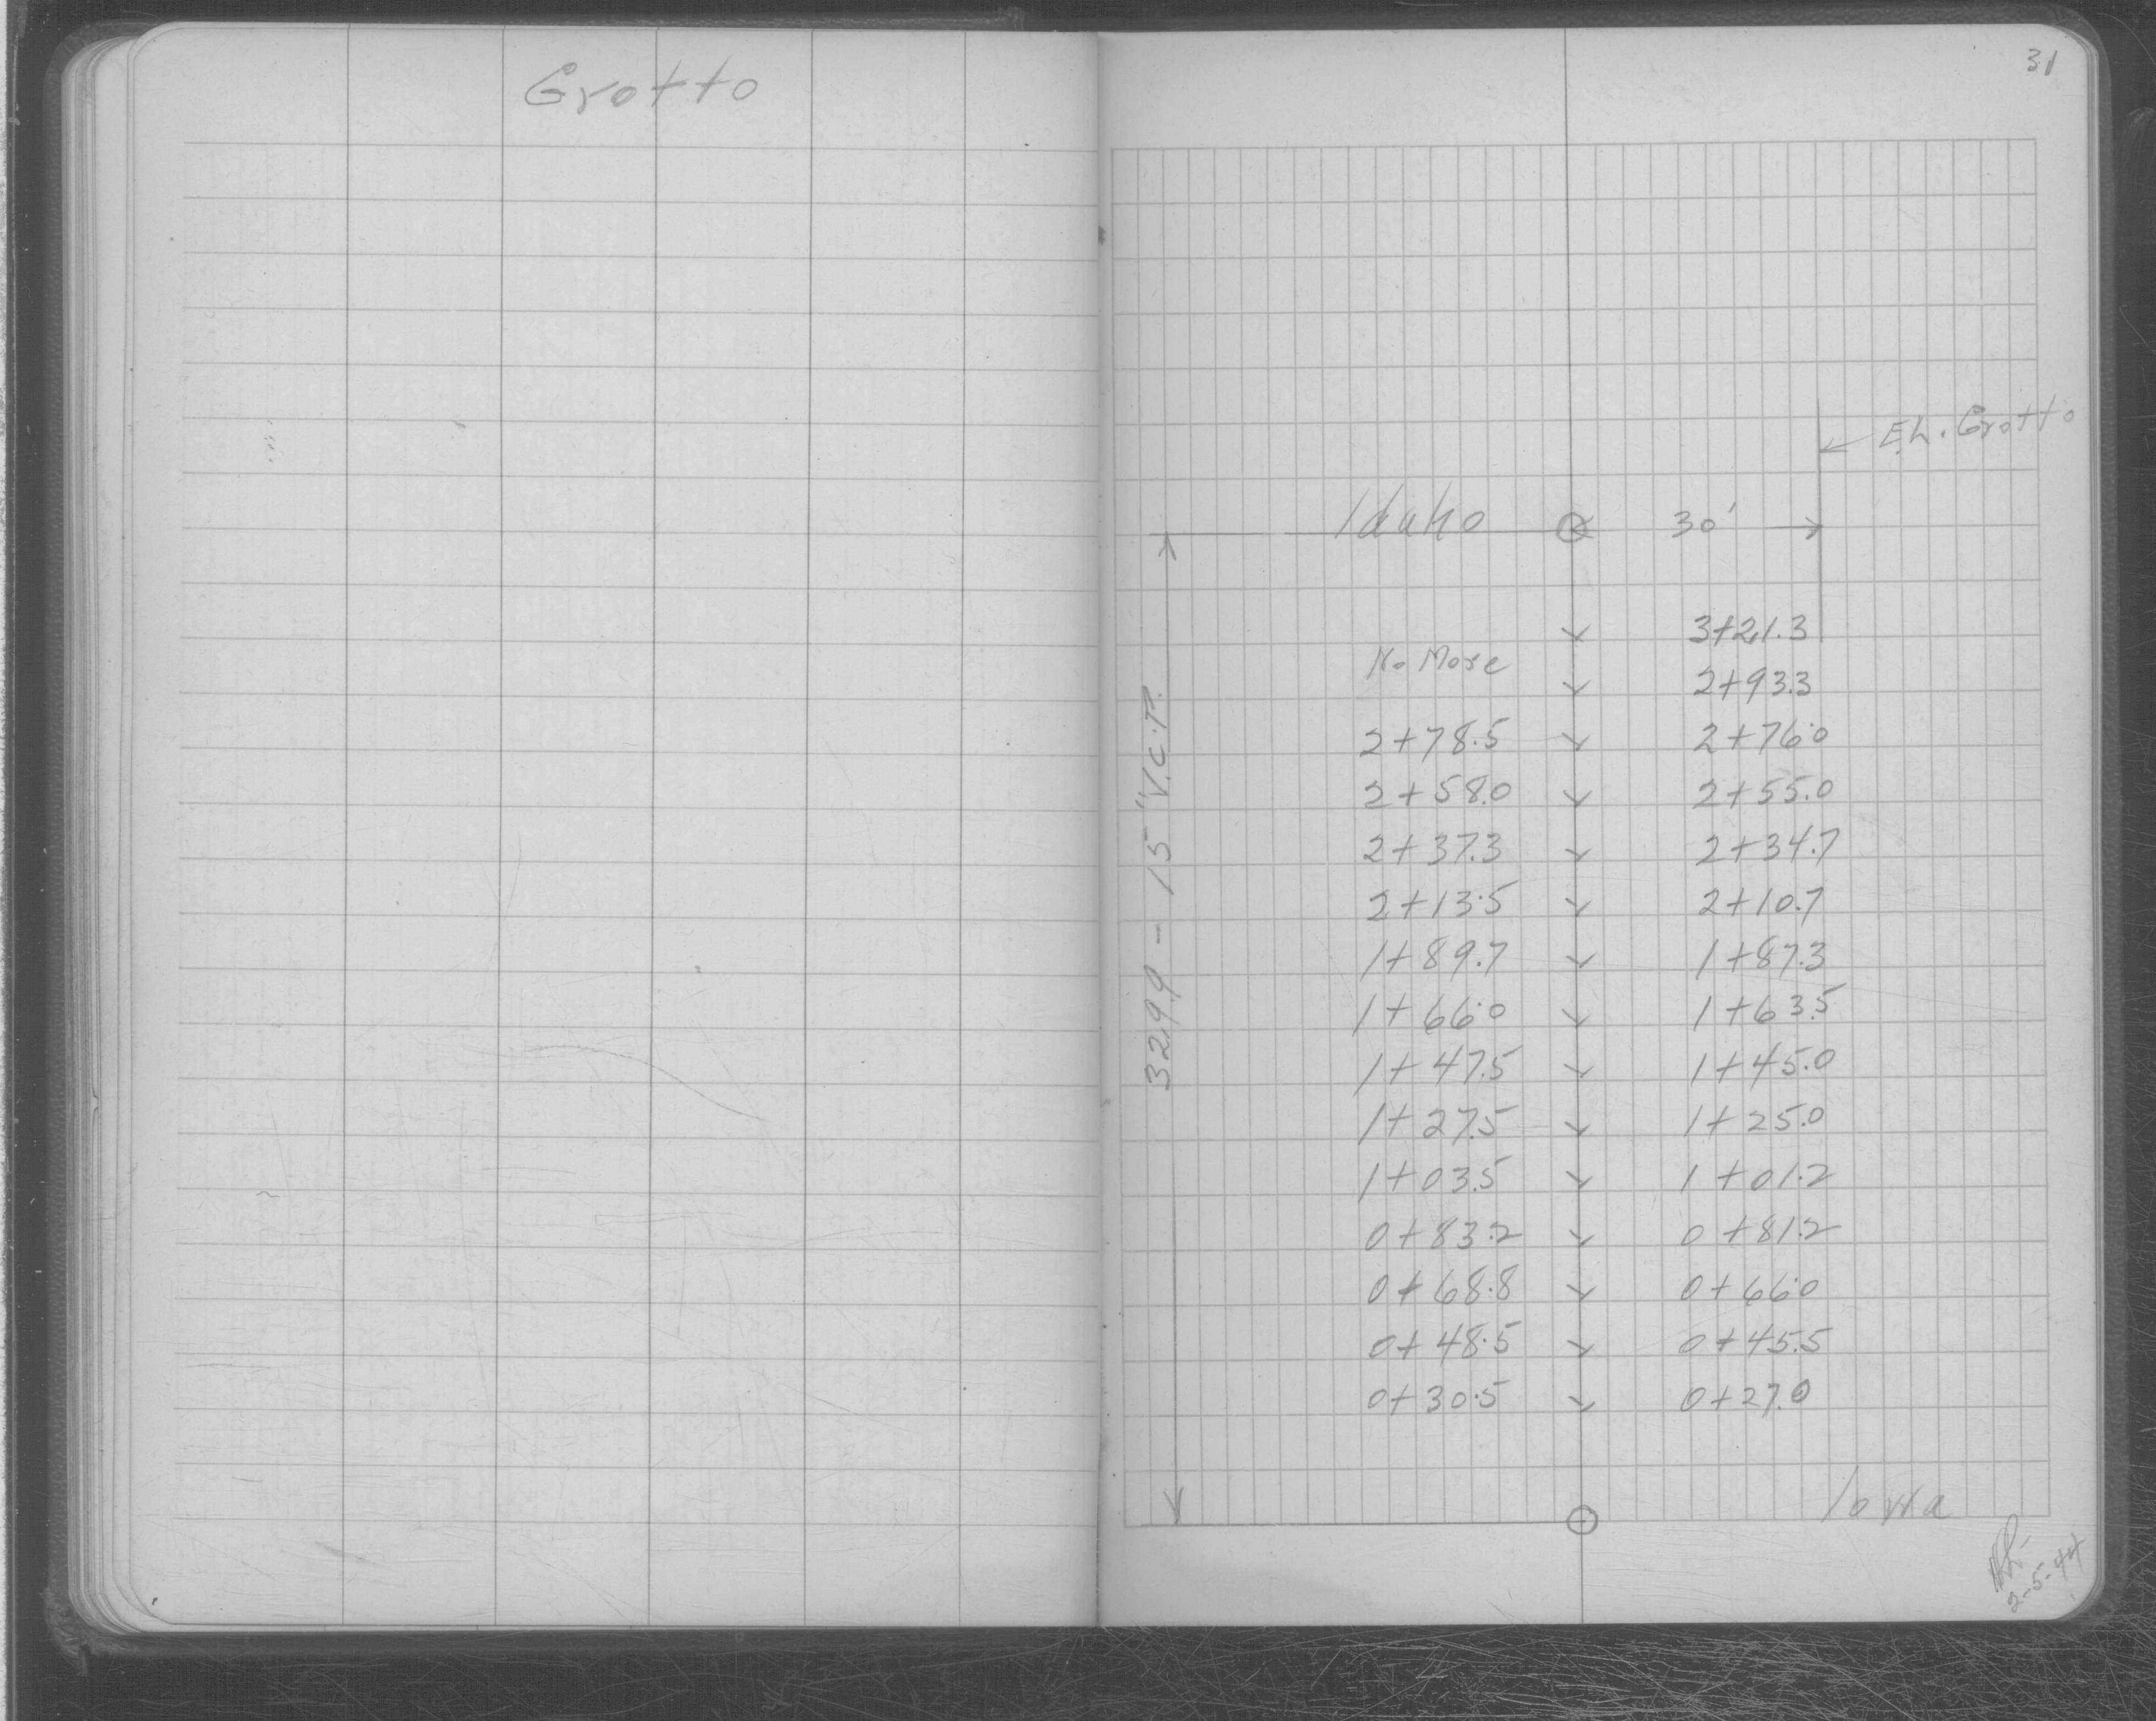 Grotto
31
E.L. Grotto
Idaho 30'
3+21.3
No More
2+93.3
2+78.5 2+76.0
2+58.0 2+55.0
2+37.3 2+34.7
2+13.5 2+10.7
1+89.7 1+87.3
1+66.0 1+63.5
1+47.5 1+45.0
1+27.5 1+25.0
1+03.5 1+01.2
0+83.2 0+81.2
0+68.8 0+66.0
0+48.5 0+45.5
0+30.5 0+27.0
329.9 - 15" V.C.P.
Iowa
2-5-44